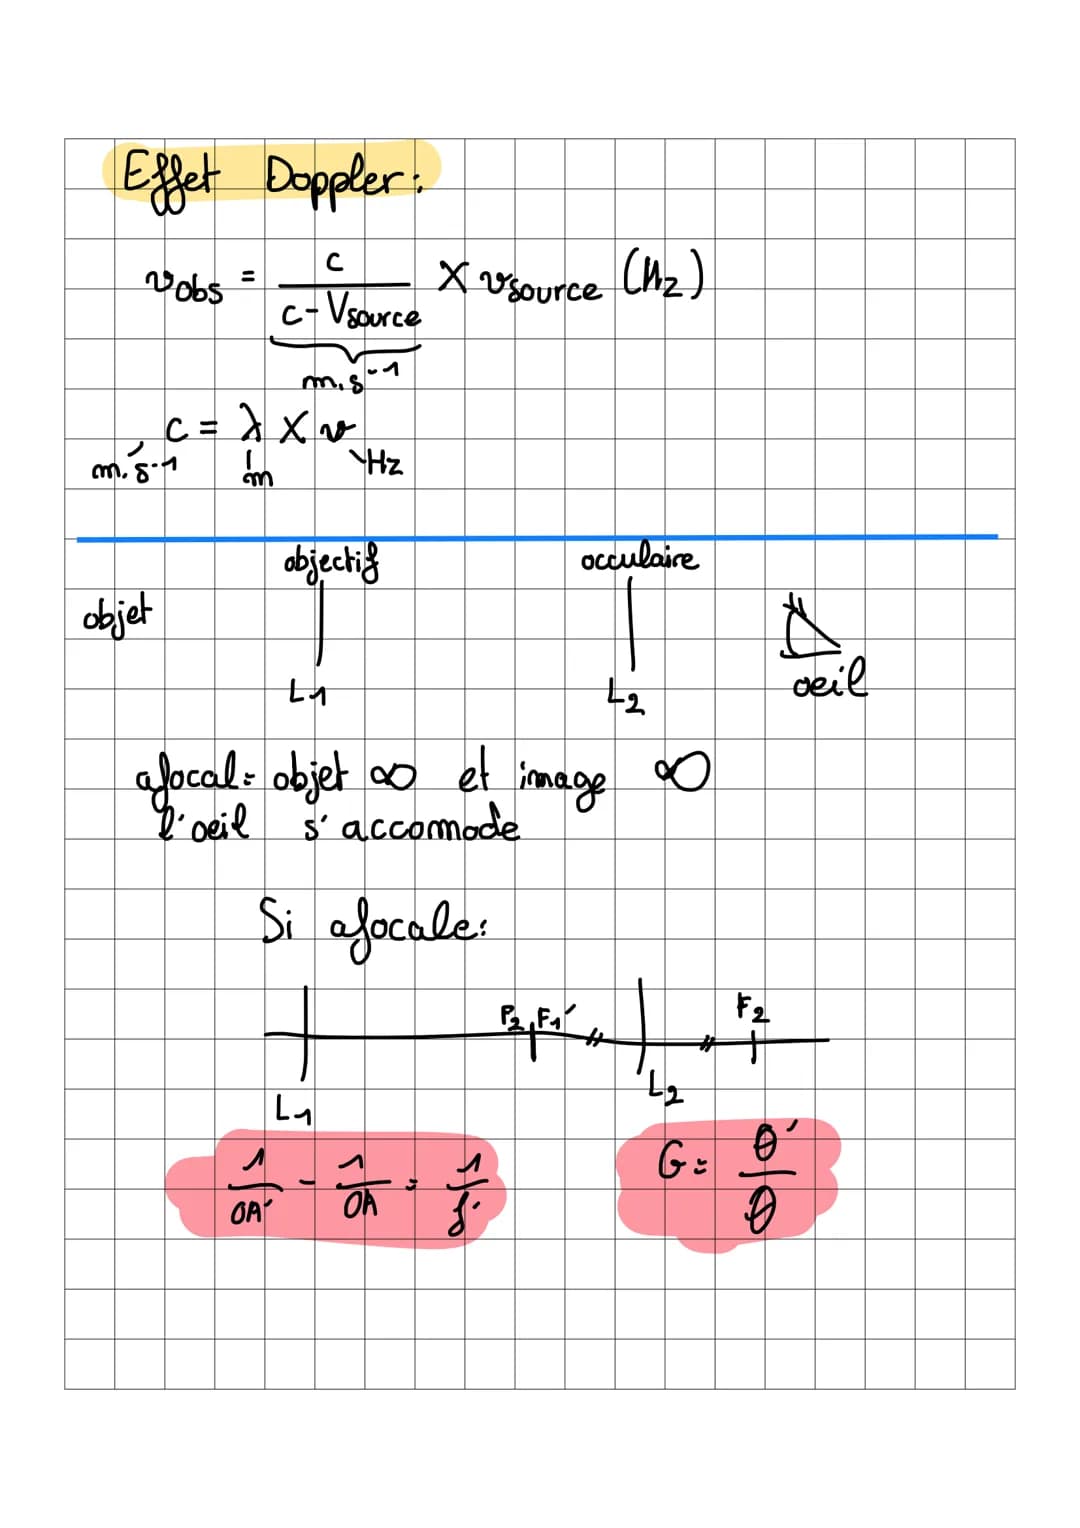 Effet Doppler:
νobs = c / (c - Vsource) × νsource (Hz)
m.s⁻¹
c = λ × ν
m.s⁻¹ m Hz
objectif occulaire
objet
L1 L2 oeil
afocal = objet ∞ et image ∞
l'oeil s'accomode
Si afocale:
F2 F1' F2
L1 L2
1/OA' - 1/OA = 1/f'
G = θ'/θ